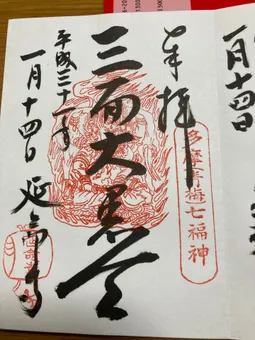 奉拝
多摩青梅七福神
三面大黒天
平成三十一年
一月十四日 延命寺
一月十四日